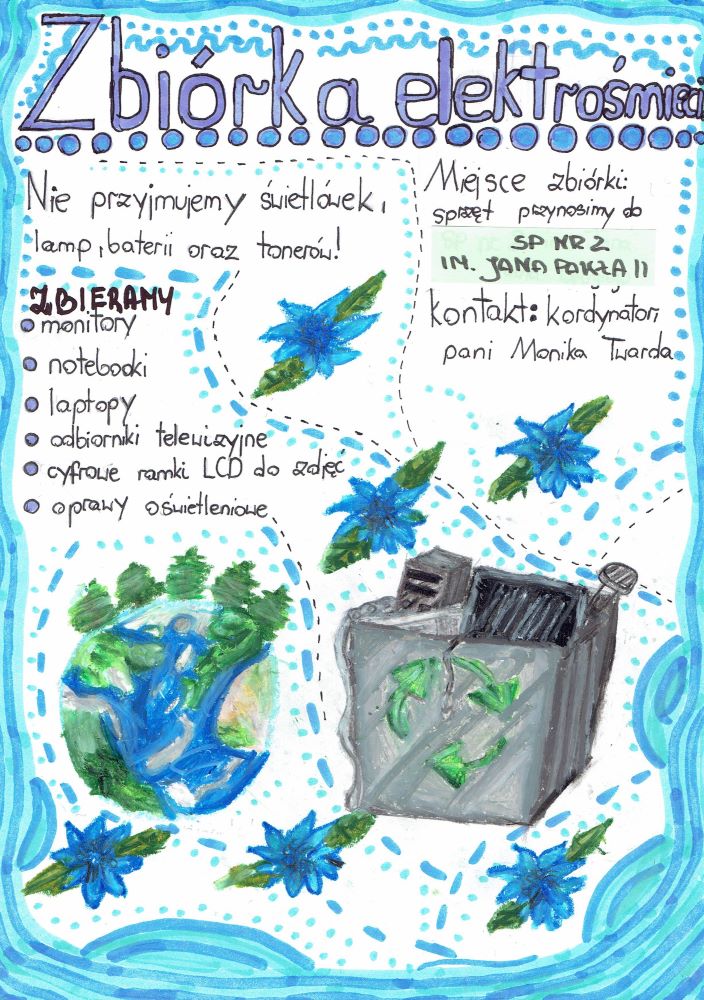 Zbiórka elektrośmieci
Nie przyjmujemy świetlówek,
lamp, baterii oraz tonerów!
ZBIERAMY
monitory
notebooki
laptopy
odbiorniki telewizyjne
cyfrowe ramki LCD do zdjęć
oprawy oświetleniowe
Miejsce zbiórki:
sprzęt przynosimy do
SP NR 2
IM. JANA PAWŁA II
kontakt: kordynatori
pani Monika Twarda